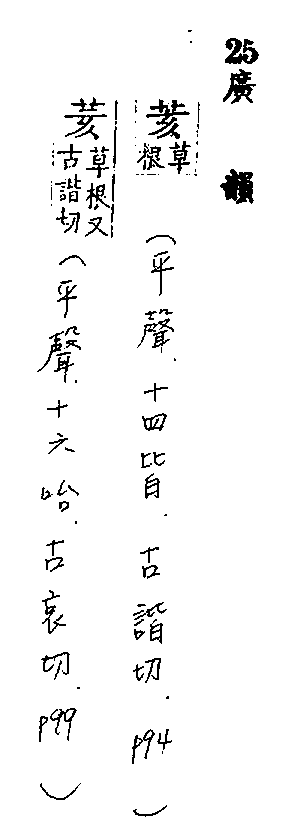 25廣 韻
荄草根(平聲.十四皆.古諧切.p94)
荄草根又古諧切(平聲.十六咍.古哀切.p99)